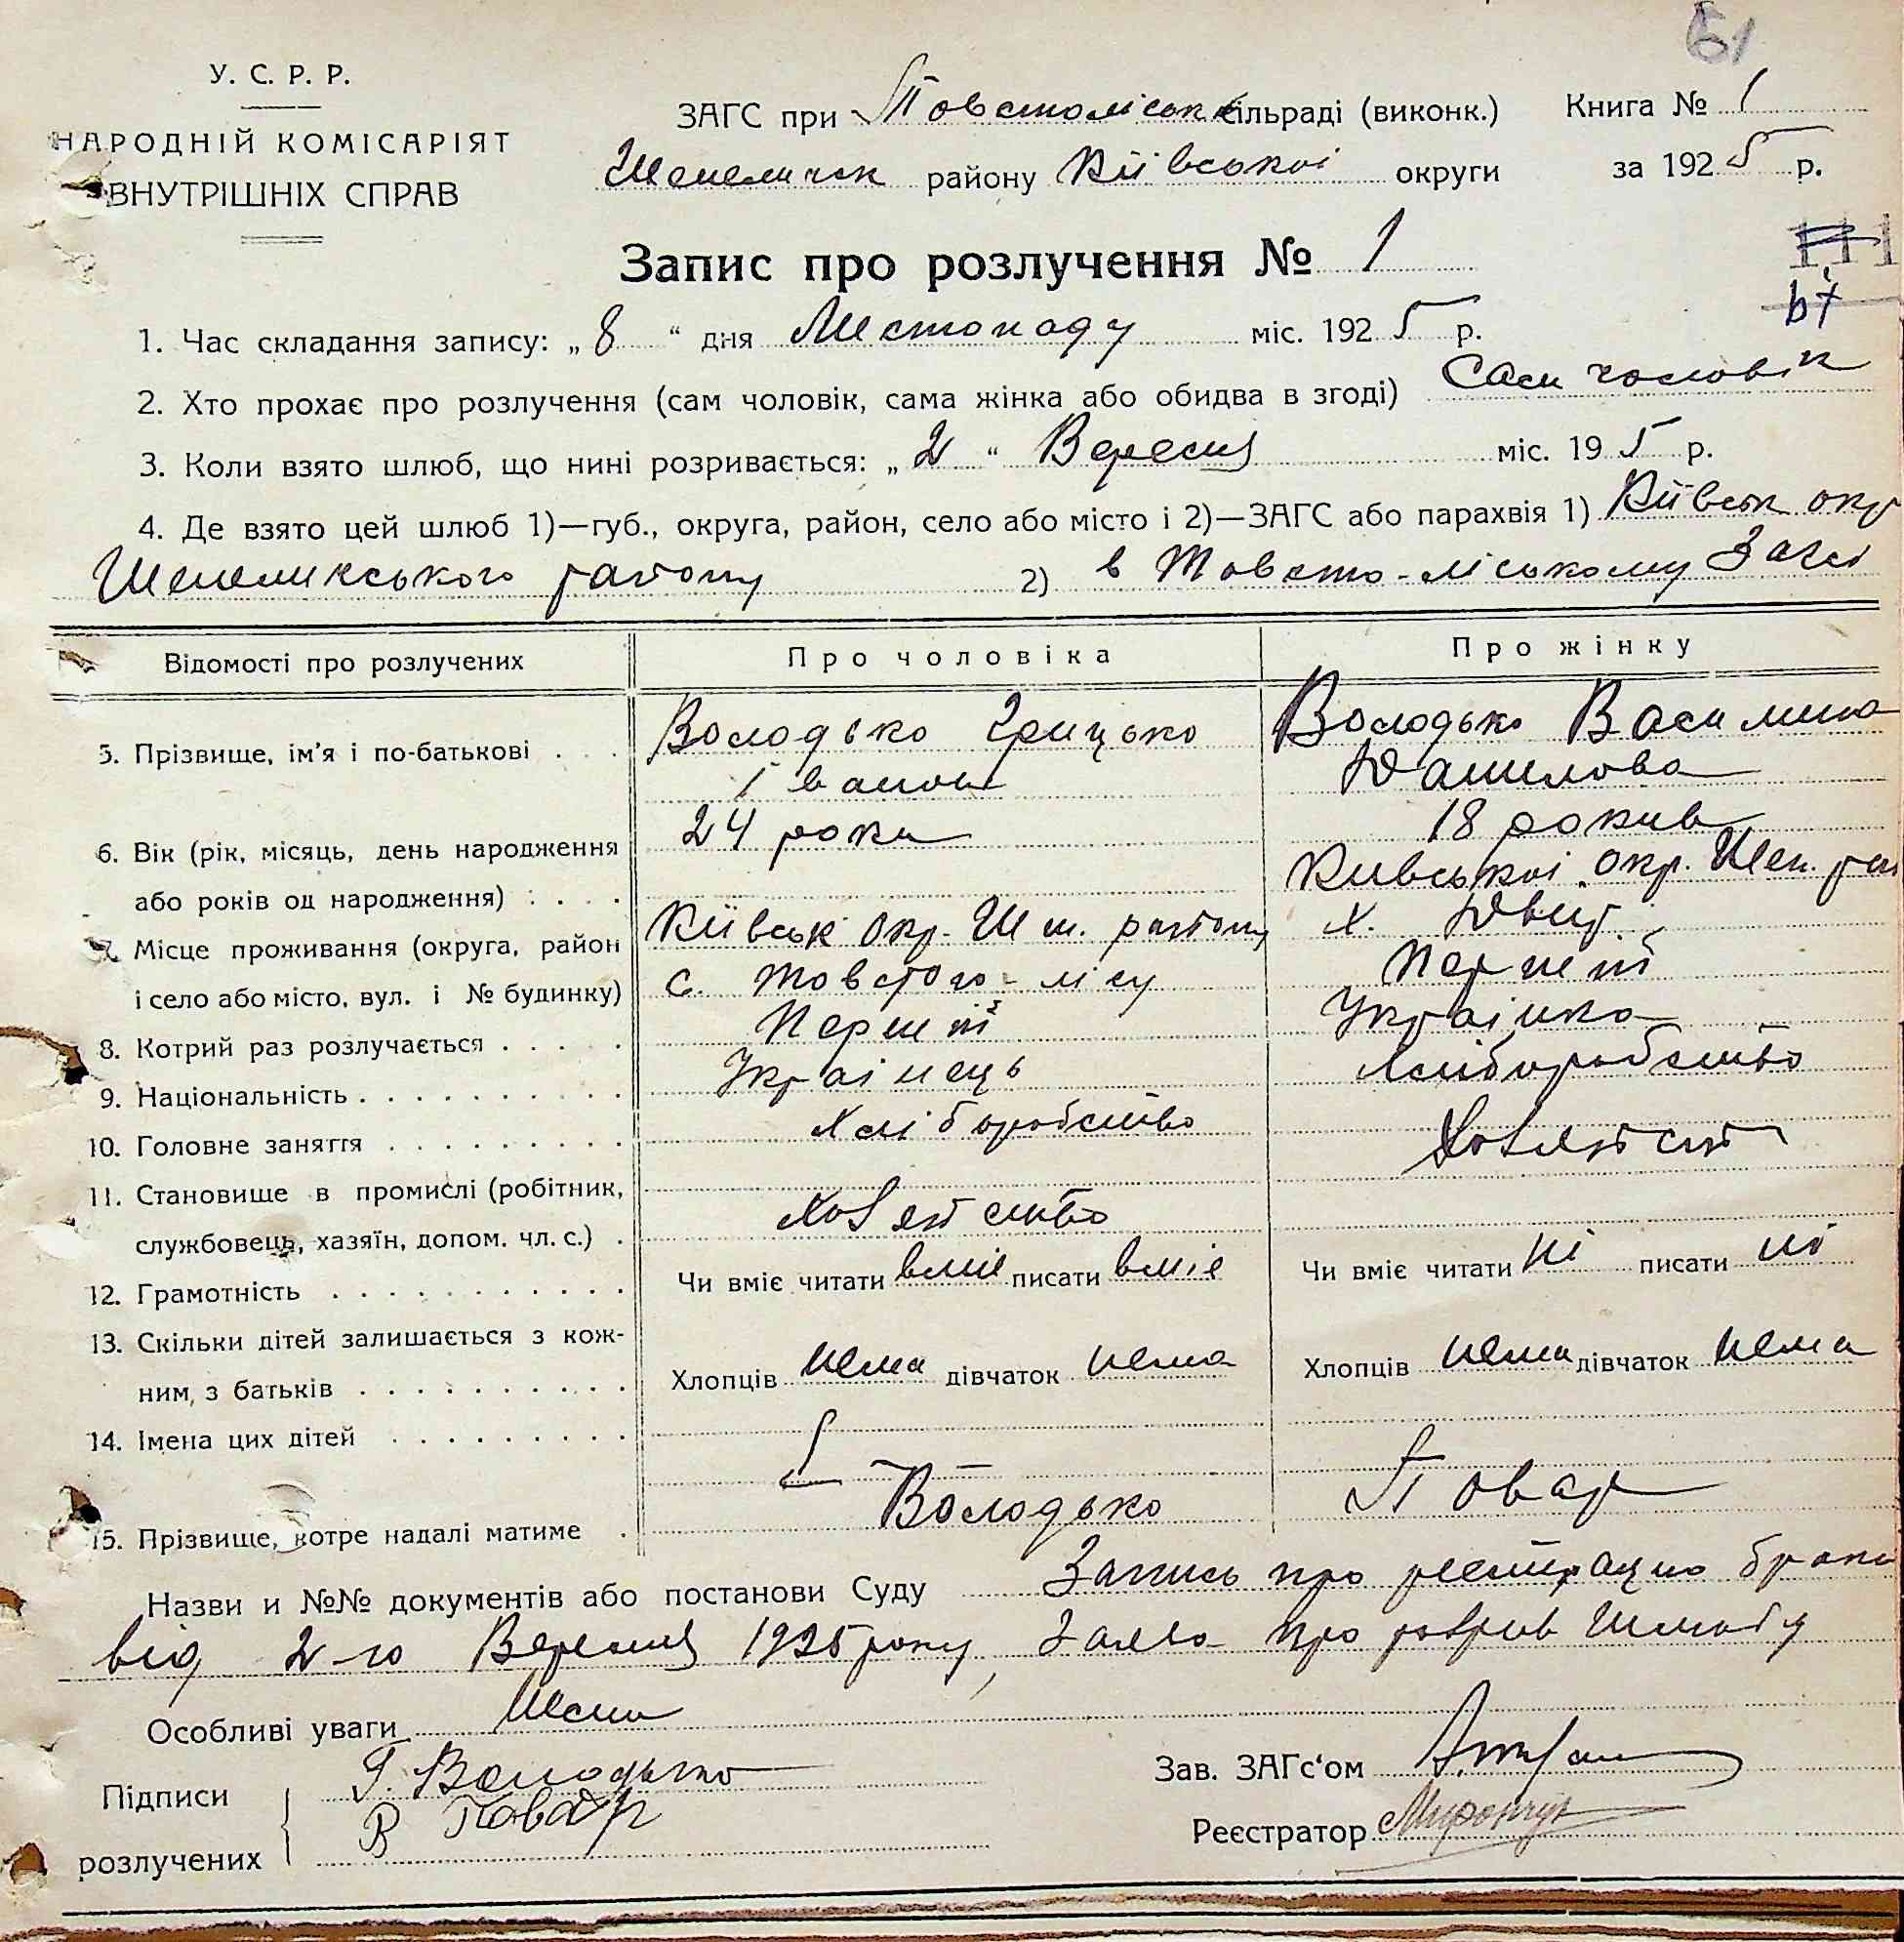 61
У. С. Р. Р.
НАРОДНІЙ КОМІСАРІЯТ
ВНУТРІШНІХ СПРАВ
ЗАГС при Товстоліськ сільраді (виконк.) Книга № 1
Шепеличск району Київської округи за 1925 р.
Запис про розлучення № 1
1. Час складання запису: „ 8 “ дня Листопаду міс. 1925 р.
2. Хто прохає про розлучення (сам чоловік, сама жінка або обидва в згоді) Сам чоловік
3. Коли взято шлюб, що нині розривається: „ 2 “ Вересня міс. 19 5 р.
4. Де взято цей шлюб 1)—губ., округа, район, село або місто і 2)—ЗАГС або парахвія 1) Київськ окр
Шепелицького району 2) в Товсто-ліському Загсі
Відомості про розлучених Про чоловіка Про жінку
5. Прізвище, ім’я і по-батькові . . . Володько Грицько Володько Василина
Іванов Данилова
6. Вік (рік, місяць, день народження 24 роки 18 рокив
або років од народження) : . . .
7. Місце проживання (округа, район Київськ окр. Шеп. району Кивської окр. Шеп. рай
і село або місто, вул. і № будинку) с. Товстого-лісу х.
8. Котрий раз розлучається . . . . . Перший Перший
9. Національність . . . . . . . . . . Українець Українка
10. Головне заняття . . . . . . . . . Хліборобство Хлиборобство
11. Становище в промислі (робітник,
службовець, хазяїн, допом. чл. с.) .
12. Грамотність . . . . . . . . . . . Чи вміє читати вміє писати вміє Чи вміє читати ні писати ні
13. Скільки дітей залишається з кож-
ним, з батьків . . . . . . . . . . Хлопців нема дівчаток нема Хлопців нема дівчаток нема
14. Імена цих дітей . . . . . . . . .
15. Прізвище, котре надалі матиме . Володько Товар
Назви и №№ документів або постанови Суду Запись про реєстрацию брака
від 2-го Вересня 1925 року, Заява про розрив Шлюбу
Особливі уваги Нема
Підписи Г. Володько Зав. ЗАГс‘ом
В Товар
розлучених Реєстратор